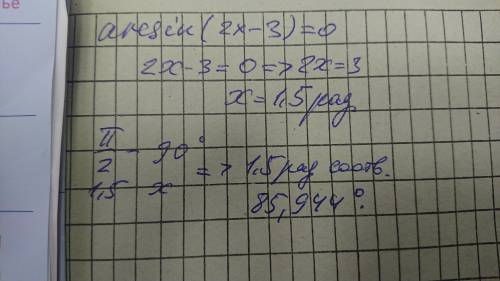 ье
arcsin(2x-3)=0
2x-3=0=>2x=3
x=1,5 рад
π/2 - 90°
1,5 x => 1.5 рад соотв.
85,944°.